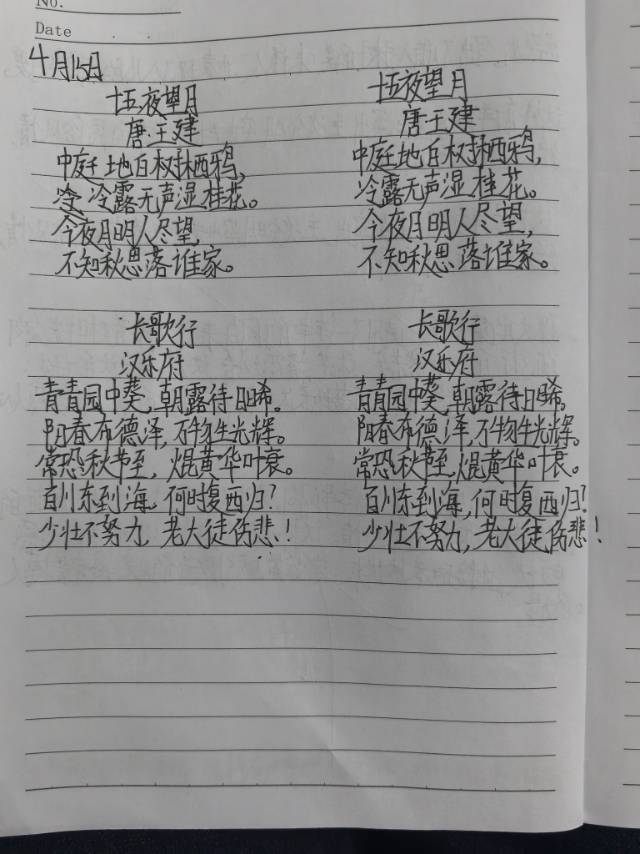 No.
Date
4月15日
十五夜望月
唐·王建
中庭地白树栖鸦,
冷冷露无声湿桂花。
今夜月明人尽望,
不知秋思落谁家。
长歌行
汉乐府
青青园中葵,朝露待日晞。
阳春布德泽,万物生光辉。
常恐秋节至,焜黄华叶衰。
百川东到海,何时复西归?
少壮不努力,老大徒伤悲!
十五夜望月
唐王建
中庭地白树栖鸦,
冷露无声湿桂花。
今夜月明人尽望,
不知秋思落谁家。
长歌行
汉乐府
青青园中葵,朝露待日晞。
阳春布德泽,万物生光辉。
常恐秋节至,焜黄华叶衰。
百川东到海,何时复西归?
少壮不努力,老大徒伤悲!